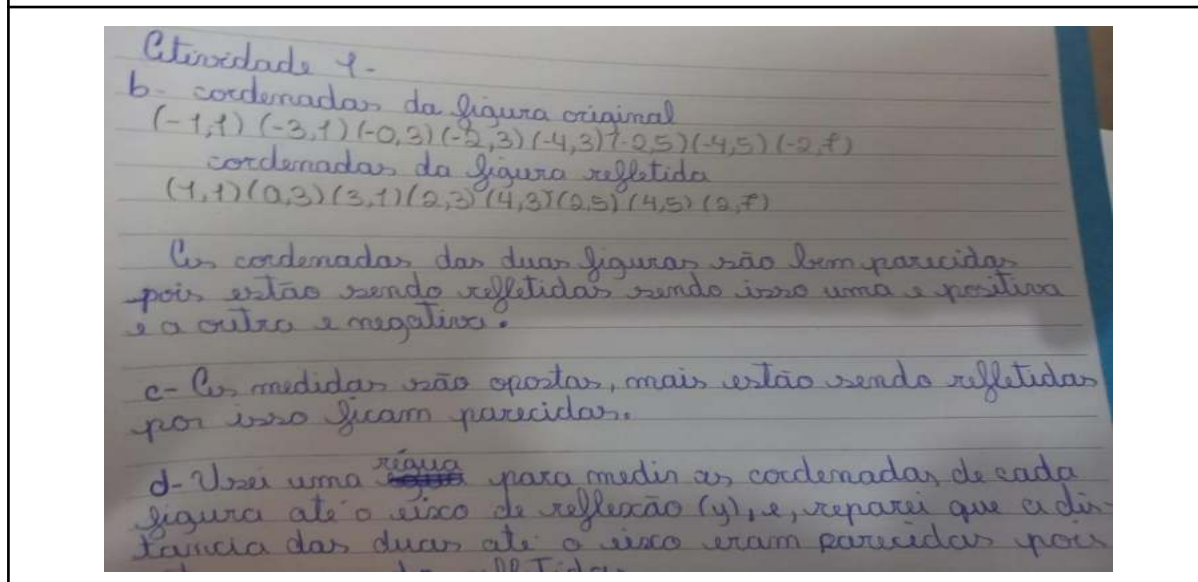 Atividade 1-
b- cordenadas da figura original
(-1,1) (-3,1) (-0,3) (-2,3) (-4,3) (-2,5) (-4,5) (-2,7)
cordenadas da figura refletida
(1,1) (0,3) (3,1) (2,3) (4,3) (2,5) (4,5) (2,7)
As cordenadas das duas figuras são bem parecidas
pois estão sendo refletidas sendo isso uma e positiva
e a outra e negativa.
c- As medidas são opostas, mais estão sendo refletidas
por isso ficam parecidas.
d- Usei uma régua para medir as cordenadas de cada
figura até o eixo de reflexão (y), e, reparei que a dis-
tancia das duas até o eixo eram parecidas pois